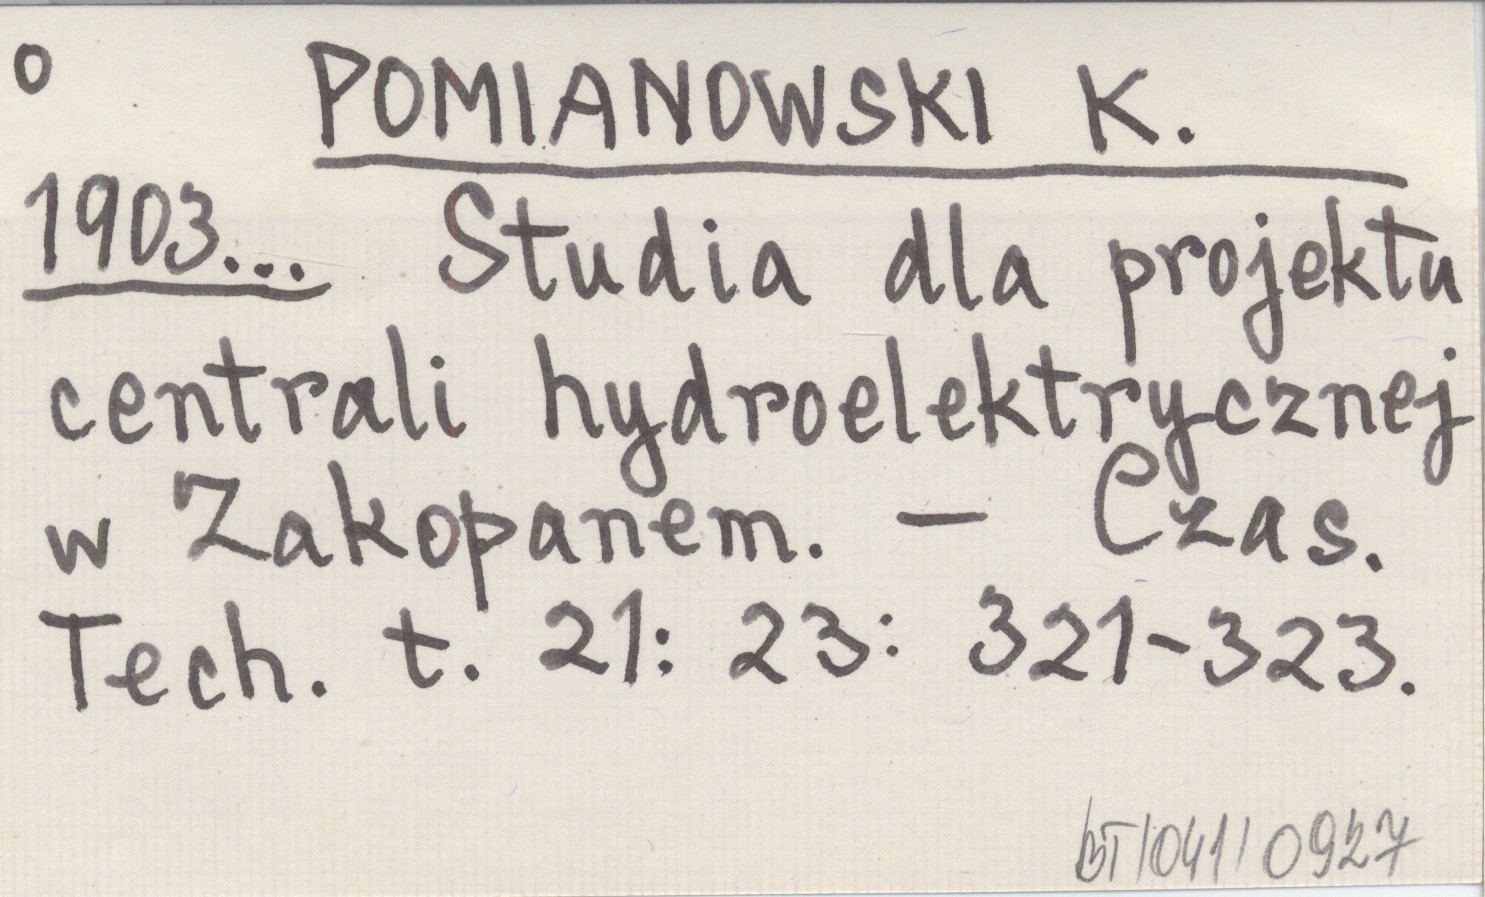 o POMIANOWSKI K.
1903... Studia dla projektu
centrali hydroelektrycznej
w Zakopanem. – Czas.
Tech. t. 21: 23: 321-323.
BT/041/0927